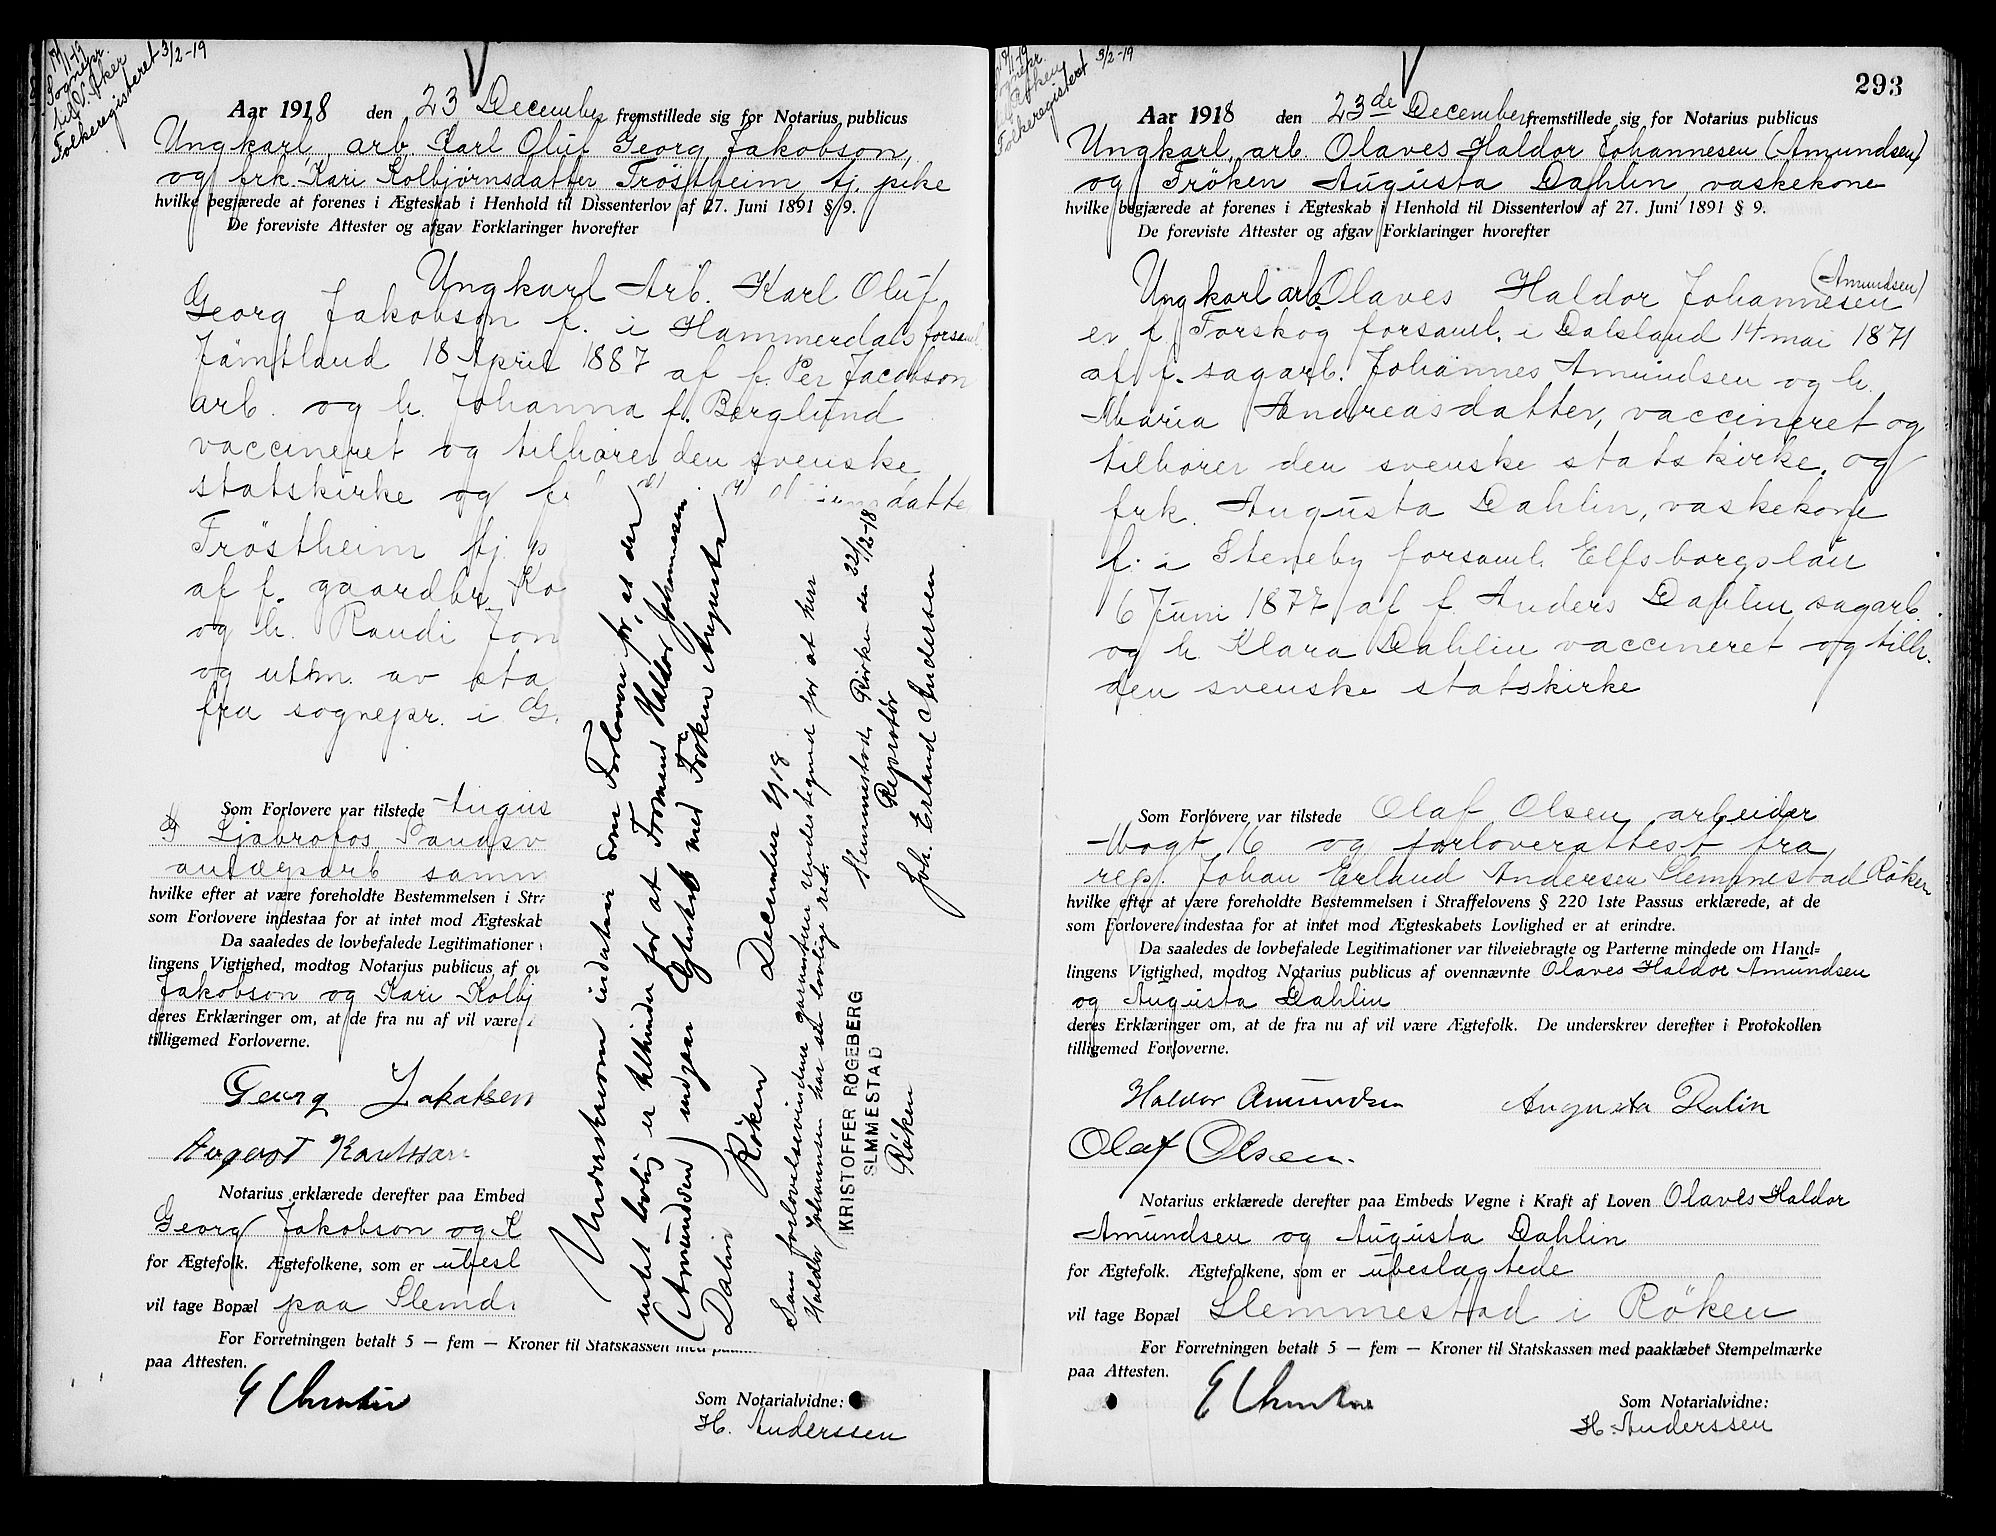 17/1-19
Sognepr.
til V. Aker
Folkeregisteret 3/2-19
Aar 1918 den 23 December fremstillede sig for Notarius publicus
Ungkarl, arb. Karl Oluf Georg Jakobson,
og frk. Kari Kolbjörnsdatter Tröstheim, tj. pike
hvilke begjærede at forenes i Ægteskab i Henhold til Dissenterlov af 27. Juni 1891 § 9.
De foreviste Attester og afgav Forklaringer hvorefter
Ungkarl Arb. Karl Oluf
Georg Jakobson f. i Hammerdals forsaml.
Jämtland 18 April 1887 af f. Per Jacobson
arb. og h. Johanna f. Berglund
vaccineret og tilhører den svenske
statskirke og
datter
Tröstheim tj. p
af f. gaardbr. Ko
og h. Randi Jon
og utm. av sta
fra sognepr. i G.
Som Forlovere var tilstede Augus
Ljabrofos
samm
hvilke efter at være foreholdte Bestemmelsen i Stra
som Forlovere indestaa for at intet mod Ægteskab
Da saaledes de lovbefalede Legitimationer
lingens Vigtighed, modtog Notarius publicus af ov
Jakobson og Kari Kolbj
deres Erklæringer om, at de fra nu af vil være
tilligemed Forloverne.
Georg Jakobsen
August
Notarius erklærede derefter paa Embed
Georg Jakobson og K
for Ægtefolk. Ægtefolkene, som er ubesl
vil tage Bopæl paa Slemd
For Forretningen betalt 5 — fem — Kroner til Statskassen med paa
paa Attesten.
Som Notarialvidne:
H. Anderssen
Underskreven indestaar som Forlovere for, at der
intet lovlig er tilhinder for at Formand Haldor Johannessen
(Amundsen) indgaar Egteskab med Frøken Augusta
Dalin
Røken December 1918
Som forlovelsesvindne garanterer undertegnede for at herr
Haldor Johannsen har sit lovlige ret.
KRISTOFFER RØGEBERG
SLMMESTAD
Røken
Slemmestad, Röiken den 22/12-18
Reprotör
Joh. Erland Andersen
18/1-19
Sognepr.
til Røken
Folkeregisteret 3/2-19
293
Aar 1918 den 23de December fremstillede sig for Notarius publicus
Ungkarl, arb. Olaves Haldor Johannesen (Amundsen)
og Fröken Augusta Dahlin, vaskekone
hvilke begjærede at forenes i Ægteskab i Henhold til Dissenterlov af 27. Juni 1891 § 9.
De foreviste Attester og afgav Forklaringer hvorefter
Ungkarl arb. Olaves Haldor Johannesen (Amundsen)
er f. Torskog forsaml. i Dalsland 14 mai 1871
af f. sagarb. Johannes Amundsen og h.
Maria Andreasdatter, vaccineret og
tilhører den svenske statskirke, og
frk. Augusta Dahlin, vaskekone
f. i Steneby forsaml. Elfsborgslän
6 Juni 1877 af f. Anders Dahlin, sagarb.
og h. Klara Dahlin vaccineret og tilh.
den svenske statskirke
Som Forlovere var tilstede Olaf Olsen, arbeider
Mogt 16 og forloverattest fra
rep. Johan Erland Andersen Slemmestad Röken
hvilke efter at være foreholdte Bestemmelsen i Straffelovens § 220 1ste Passus erklærede, at de
som Forlovere indestaa for at intet mod Ægteskabets Lovlighed er at erindre.
Da saaledes de lovbefalede Legitimationer var tilveiebragte og Parterne mindede om Hand=
lingens Vigtighed, modtog Notarius publicus af ovennævnte Olaves Haldor Amundsen
og Augusta Dahlin
deres Erklæringer om, at de fra nu af vil være Ægtefolk. De underskrev derefter i Protokollen
tilligemed Forloverne.
Haldor Amundsen Augusta Dalin
Olaf Olsen.
Notarius erklærede derefter paa Embeds Vegne i Kraft af Loven Olaves Haldor
Amundsen og Augusta Dahlin
for Ægtefolk. Ægtefolkene, som er ubeslægtede
vil tage Bopæl Slemmestad i Röken
For Forretningen betalt 5 — fem — Kroner til Statskassen med paaklæbet Stempelmærke
paa Attesten.
Som Notarialvidne:
H. Anderssen